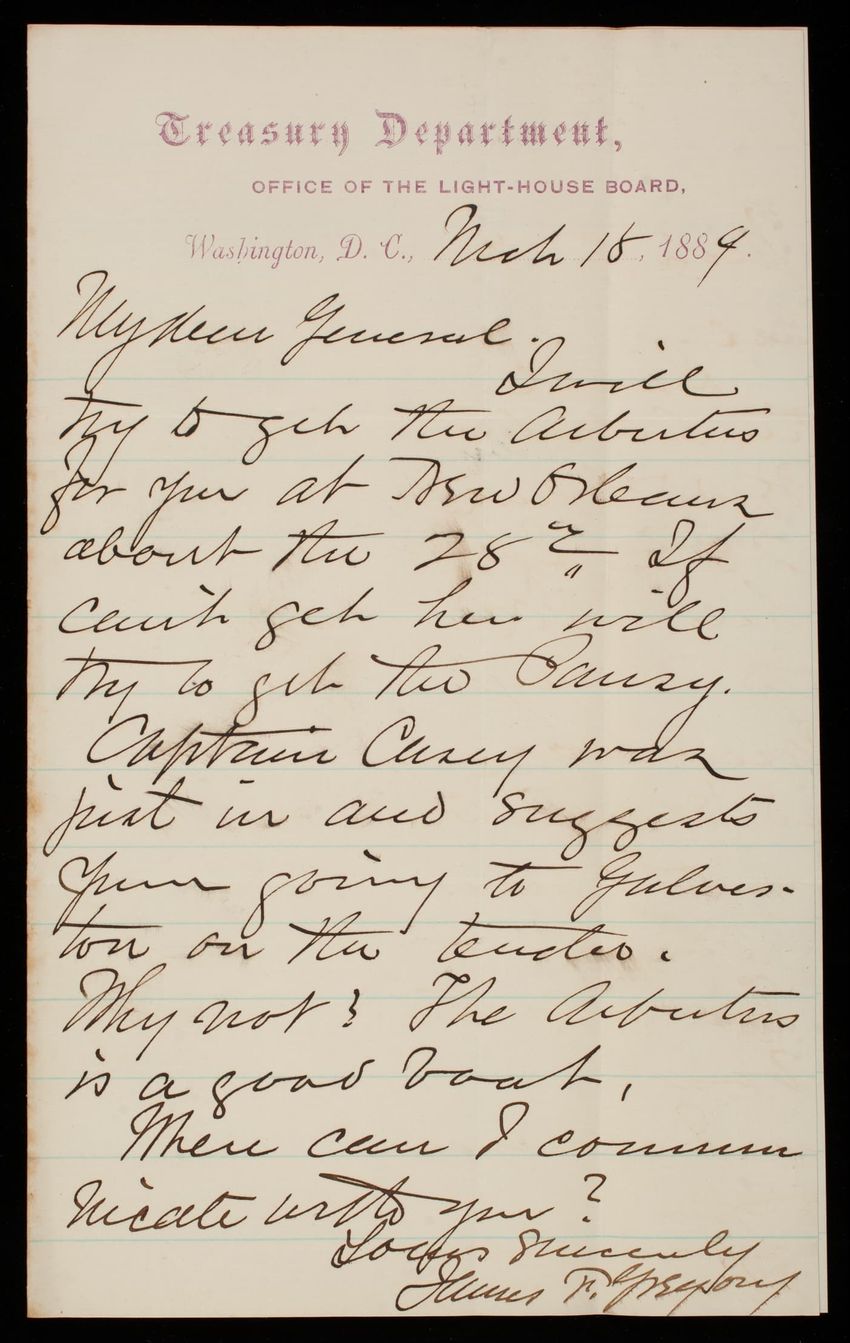 Treasury Department,
OFFICE OF THE LIGHT-HOUSE BOARD,
Washington, D. C., Mch 18, 1884.
My dear General.
I will
try to get the Arbutus
for you at New Orleans
about the 28th If
can't get her will
try to get the Pansy.
Captain Casey was
just in and suggests
your going to Galves-
ton on the tender.
Why not? The Arbutus
is a good boat,
Where can I commu
nicate with you?
Yours sincerely
James F. Gregory